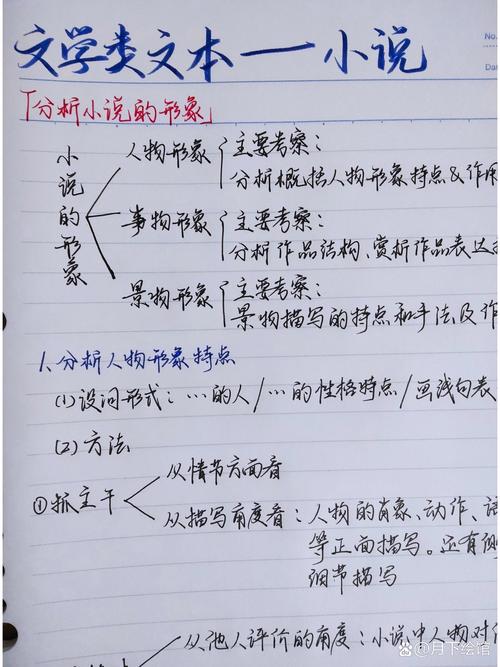 文学类文本一小说
No.
Da
「分析小说的形象」
小说的形象
人物形象
主要考察：
分析概括人物形象特点&作用
事物形象
主要考察：
分析作品结构、赏析作品表达
景物形象
主要考察：
景物描写的特点和手法及作
1、分析人物形象特点
(1)设问形式：…的人/…的性格特点/画浅句表
(2)方法
①抓主干
从情节方面看
从描写角度看：人物的肖象、动作、语
等正面描写。还有侧
细节描写
从他人评价的角度：小说中人物对
月下绘馆